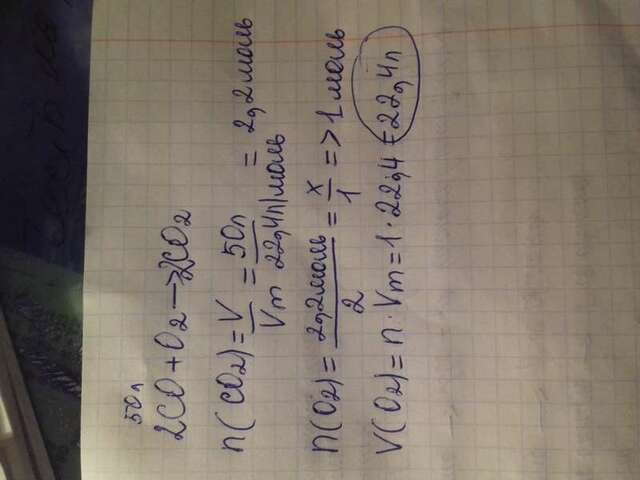 50л
2CO + O2 → 2CO2
n(CO2) = V/Vm = 50л/22,4л/моль = 2,2 моль
n(O2) = 2,2моль/2 = x/1 => 1 моль
V(O2) = n · Vm = 1 · 22,4 = 22,4л